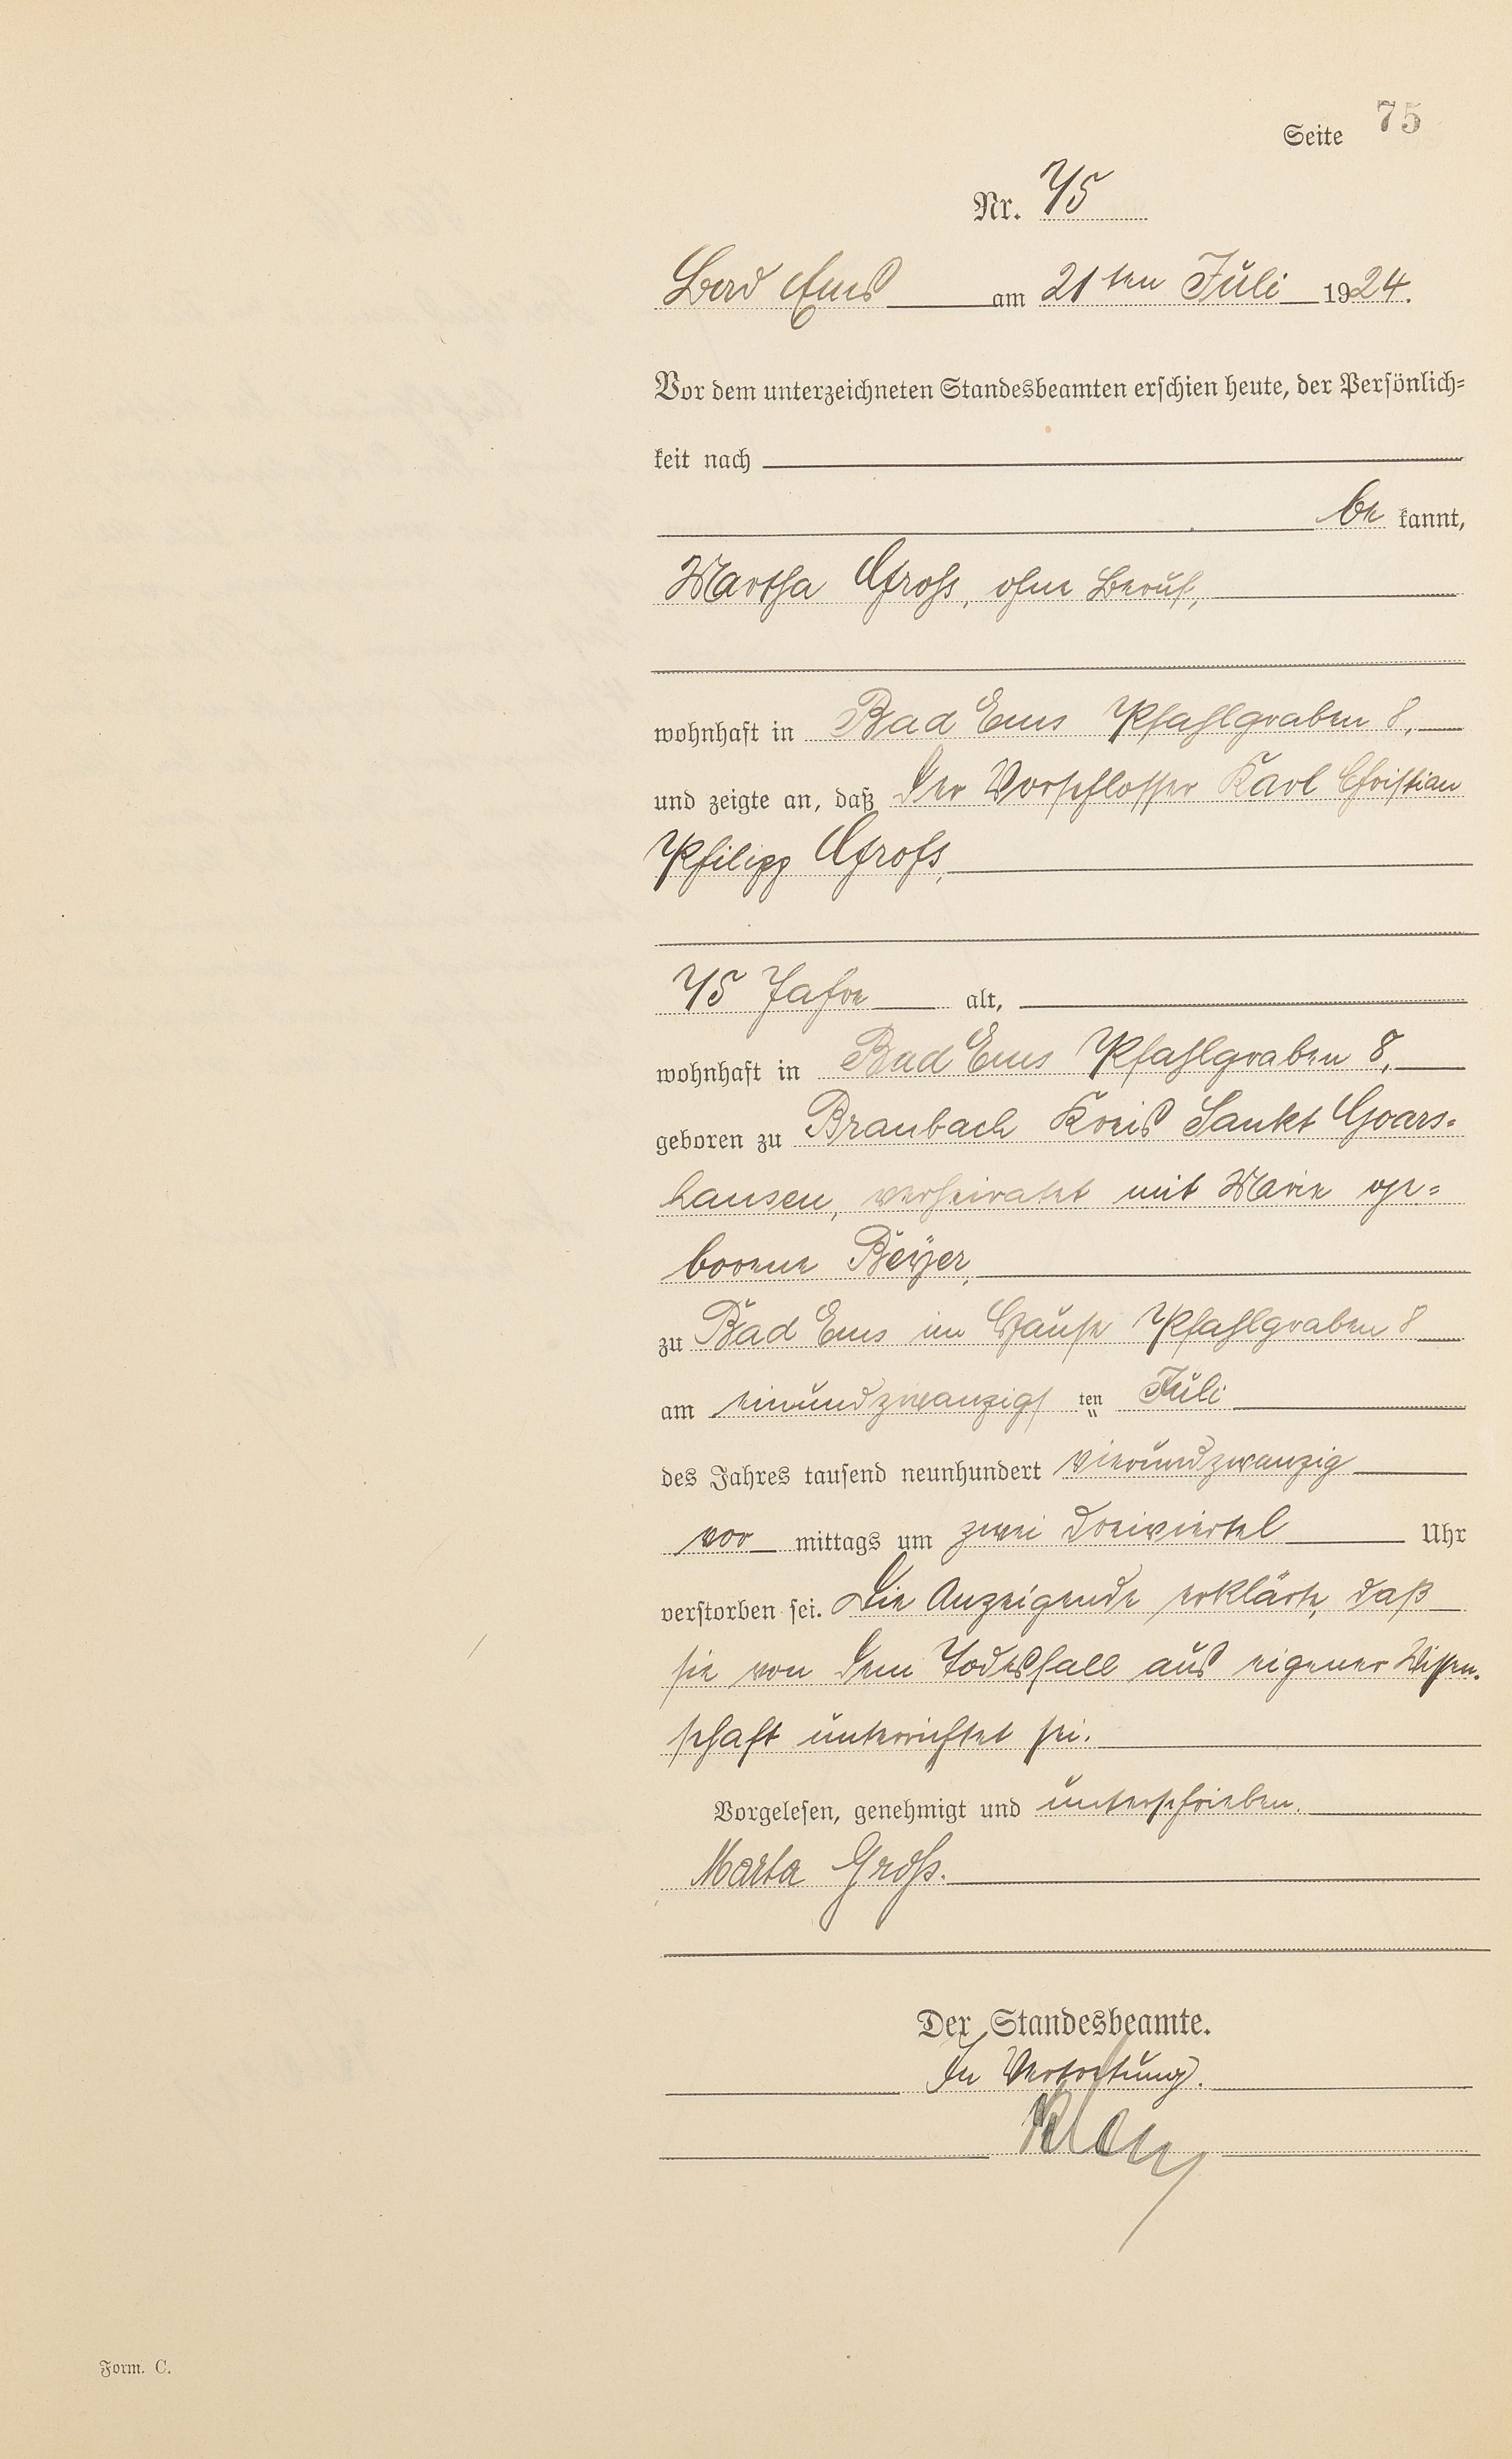 Seite 75
Nr. 75
Bad Ems am 21ten Juli 1924.
Vor dem unterzeichneten Standesbeamten erschien heute, der Persönlich-
keit nach
be kannt,
Martha Gross, ohne Beruf,
wohnhaft in Bad Ems Pfahlgraben 8,
und zeigte an, daß der Vorschlosser Karl Christian
Philipp Gross,
75 Jahre alt,
wohnhaft in Bad Ems Pfahlgraben 8,
geboren zu Braubach Kreis Sankt Goars-
hausen, verheiratet mit Marie ge-
borene Beyer,
zu Bad Ems im Hause Pfahlgraben 8
am einundzwanzigsten Juli
des Jahres tausend neunhundert vierundzwanzig
vor mittags um zwei dreiviertel Uhr
verstorben sei. Die Anzeigende erklärte, daß
sie von dem Todesfall aus eigener Wissen-
schaft unterrichtet sei.
Vorgelesen, genehmigt und unterschrieben.
Marta Groß.
Der Standesbeamte.
In Vertretung.
Form. C.